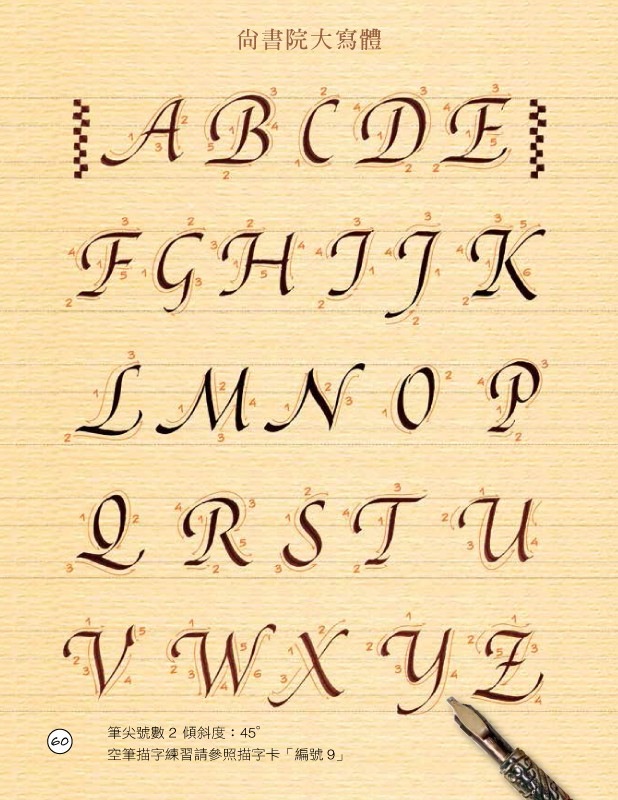 尚書院大寫體
A B C D E
F G H I J K
L M N O P
Q R S T U
V W X Y Z
筆尖號數 2 傾斜度：45°
60 空筆描字練習請參照描字卡「編號 9」